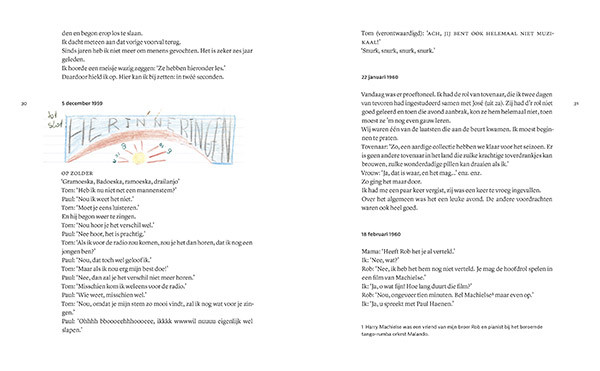 den en begon erop los te slaan.
Ik dacht meteen aan dat vorige voorval terug.
Sinds jaren heb ik niet meer om mensen gevochten. Het is zeker zes jaar
geleden.
Ik hoorde een meisje wazig zeggen: 'Ze hebben hieronder les.'
Daardoor hield ik op. Hier kan ik bij zetten: in twéé seconden.
20
5 december 1959
HERINNERINGEN
OP ZOLDER
'Gramoeska, Badoeska, ramoeska, drailanjo'
Tom: 'Heb ik nu niet net een mannenstem?'
Paul: 'Nou ik weet het niet.'
Tom: 'Moet je eens luisteren.'
En hij begon weer te zingen.
Tom: 'Nou hoor je het verschil wel.'
Paul: 'Nee hoor, het is prachtig.'
Tom: 'Als ik voor de radio zou komen, zou je het dan horen, dat ik nog een
jongen ben?'
Paul: 'Nou, dat toch wel geloof ik.'
Tom: 'Maar als ik nou erg mijn best doe!'
Paul: 'Nee, dan zal je het verschil niet meer horen.'
Tom: 'Misschien kom ik weleens voor de radio.'
Paul: 'Wie weet, misschien wel.'
Tom: 'Nou, omdat je mijn stem zo mooi vindt, zal ik nog wat voor je zin-
gen.'
Paul: 'Ohhhh bboooeehhooooee, ikkkk wwwwil nuuuu eigenlijk wel
slapen.'
Tom (verontwaardigd): 'ACH, JIJ BENT OOK HELEMAAL NIET MUZI-
KAAL!'
'Snurk, snurk, snurk, snurk.'
22 januari 1960
21
Vandaag was er proeftoneel. Ik had de rol van tovenaar, die ik twee dagen
van tevoren had ingestudeerd samen met José (uit 2a). Zij had d'r rol niet
goed geleerd en toen die avond aanbrak, kon ze hem helemaal niet, toen
moest ze 'm nog even gauw leren.
Wij waren één van de laatsten die aan de beurt kwamen. Ik moest begin-
nen te praten.
Tovenaar: 'Zo, een aardige collectie hebben we klaar voor het seizoen. Er
is geen andere tovenaar in het land die zulke krachtige toverdrankjes kan
brouwen, zulke wonderdadige pillen kan draaien als ik.'
Vrouw: 'Ja, dat is waar, en het mag...' enz. enz.
Zo ging het maar door.
Ik had me een paar keer vergist, zij was een keer te vroeg ingevallen.
Over het algemeen was het een leuke avond. De andere voordrachten
waren ook heel goed.
18 februari 1960
Mama: 'Heeft Rob het je al verteld.'
Ik: 'Nee, wat?'
Rob: 'Nee, ik heb het hem nog niet verteld. Je mag de hoofdrol spelen in
een film van Machielse.'
Ik: 'Ja, o wat fijn! Hoe lang duurt die film?'
Rob: 'Nou, ongeveer tien minuten. Bel Machielse¹ maar even op.'
Ik: 'Ja, u spreekt met Paul Haenen.'
1 Harry Machielse was een vriend van mijn broer Rob en pianist bij het beroemde
tango-rumba orkest Malando.